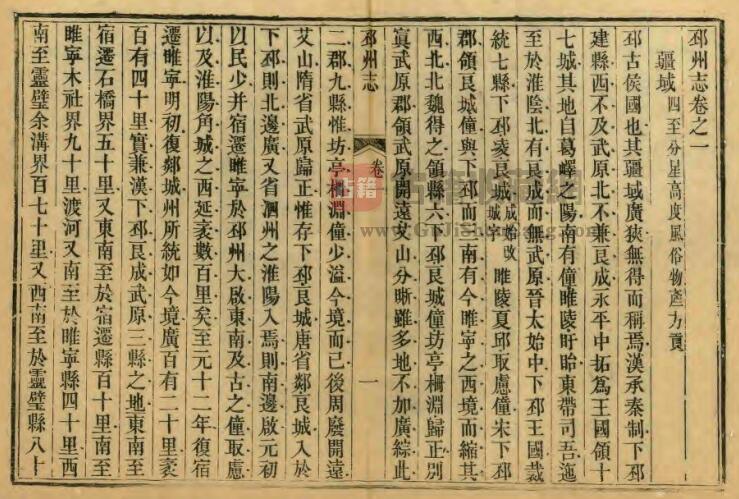 邳州志卷之一
疆域 四至 分星 高度 風俗 物產 力貢
邳古侯國也其疆域廣狹無得而稱焉漢承秦制下邳
建縣西不及武原北不兼艮成永平中拓為王國領十
七城其地自葛嶧之陽南有僮睢陵盱眙東帶司吾迤
至於淮陰北有艮成而無武原晉太始中下邳王國裁
統七縣下邳淩艮城 成始改城字 睢陵夏邱取慮僮宋下邳
郡領艮城僮與下邳而三南有今睢寧之西境而縮其
西北北魏得之領縣六下邳艮城僮坊亭柵淵歸正別
寘武原郡領武原開遠艾山分晰雖多地不加廣綜此
邳州志
卷一
一
二郡九縣惟坊亭柵淵僮少溢今境而已後周廢開遠
艾山隋省武原歸正惟存下邳艮城唐省鄰艮城入於
下邳則北邊廣又省泗州之淮陽入焉則南邊啟元初
以民少并宿遷睢寧於邳州大啟東南及古之僮取慮
以及淮陽角城之西延袤數百里矣至元十二年復宿
遷睢寧明初復鄰城州所統如今境廣百有二十里袤
百有四十里實兼漢下邳艮成武原三縣之地東南至
宿遷石橋界五十里又東南至於宿遷縣百十里南至
睢寧木社界九十里渡河又南至於睢寧縣四十里西
南至靈璧余溝界百七十里又西南至於靈璧縣八十
古籍
www.GuJiShuKang.com